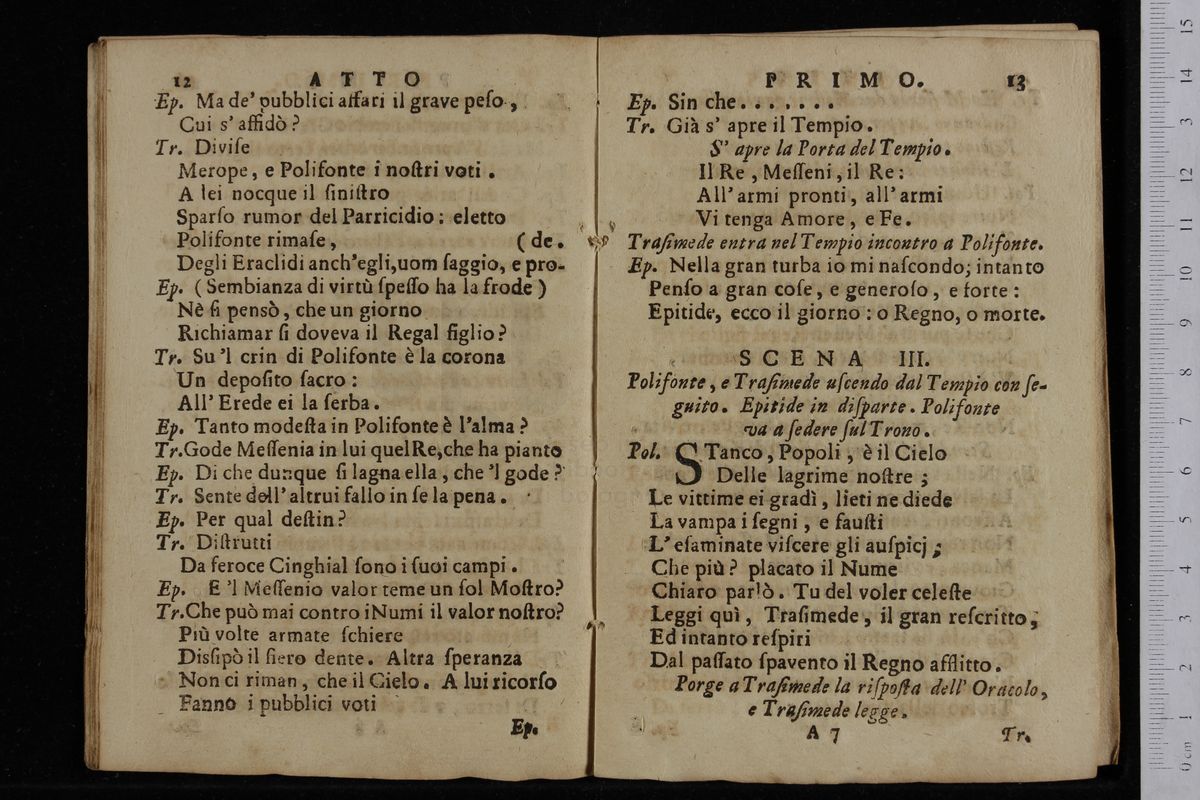 12 ATTO
Ep. Ma de' pubblici affari il grave peso,
Cui s' affidò?
Tr. Diviſe
Merope, e Polifonte i noſtri voti.
A lei nocque il ſiniſtro
Sparſo rumor del Parricidio: eletto
Polifonte rimaſe, (de.
Degli Eraclidi anch'egli, uom ſaggio, e pro-
Ep. (Sembianza di virtù ſpeſſo ha la frode)
Nè ſi pensò, che un giorno
Richiamar ſi doveva il Regal figlio?
Tr. Su 'l crin di Polifonte è la corona
Un depoſito ſacro:
All' Erede ei la ſerba.
Ep. Tanto modeſta in Polifonte è l'alma?
Tr. Gode Meſſenia in lui quel Re, che ha pianto
Ep. Di che dunque ſi lagna ella, che 'l gode?
Tr. Sente dell' altrui fallo in ſe la pena.
Ep. Per qual deſtin?
Tr. Diſtrutti
Da feroce Cinghial ſono i ſuoi campi.
Ep. E 'l Meſſenio valor teme un ſol Moſtro?
Tr. Che può mai contro i Numi il valor noſtro?
Più volte armate ſchiere
Disſipò il fiero dente. Altra ſperanza
Non ci riman, che il Cielo. A lui ricorſo
Fanno i pubblici voti
Ep.
PRIMO. 13
Ep. Sin che.......
Tr. Già s' apre il Tempio.
S' apre la Porta del Tempio.
Il Re, Meſſeni, il Re:
All' armi pronti, all' armi
Vi tenga Amore, e Fe.
Traſimede entra nel Tempio incontro a Polifonte.
Ep. Nella gran turba io mi naſcondo; intanto
Penſo a gran coſe, e generoſo, e forte:
Epitide, ecco il giorno: o Regno, o morte.
SCENA III.
Polifonte, e Traſimede uſcendo dal Tempio con ſe-
guito. Epitide in diſparte. Polifonte
va a ſedere ſul Trono.
Pol. STanco, Popoli, è il Cielo
Delle lagrime noſtre;
Le vittime ei gradì, lieti ne diede
La vampa i ſegni, e fauſti
L' eſaminate viſcere gli auſpicj;
Che più? placato il Nume
Chiaro parlò. Tu del voler celeſte
Leggi quì, Traſimede, il gran reſcritto;
Ed intanto reſpiri
Dal paſſato ſpavento il Regno afflitto.
Porge a Traſimede la riſpoſta dell' Oracolo,
e Traſimede legge.
A 7 Tr.
0 cm 1 2 3 4 5 6 7 8 9 10 11 12 13 14 15